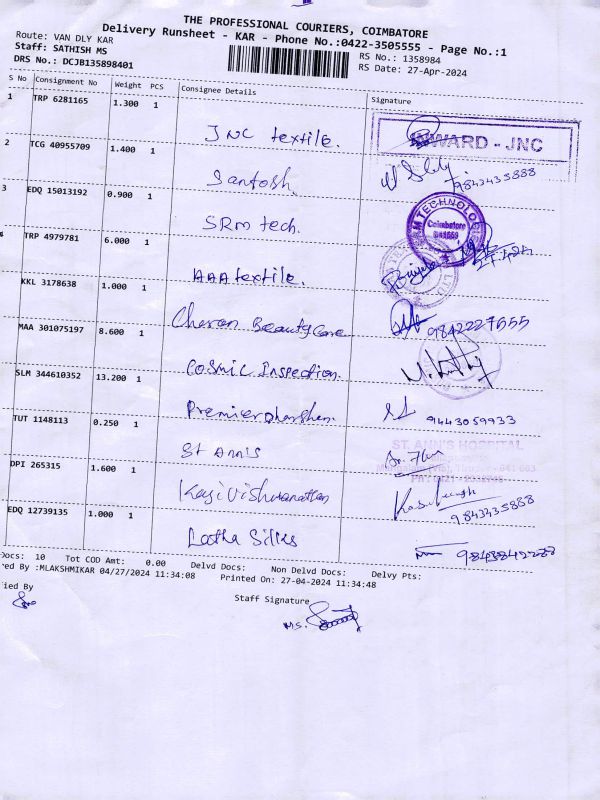 THE PROFESSIONAL COURIERS, COIMBATORE
Delivery Runsheet - KAR - Phone No.:0422-3505555 - Page No.:1
Route: VAN DLY KAR
Staff: SATHISH MS
DRS No.: DCJB135898401
RS No.: 1358984
RS Date: 27-Apr-2024
S No Consignment No Weight PCS Consignee Details Signature
1 TRP 6281165 1.300 1 JNC textile. INWARD - JNC
2 TCG 40955709 1.400 1 Santosh. 9843435888
3 EDQ 15013192 0.900 1 SRM tech. Coimbatore
4 TRP 4979781 6.000 1 AAA textile.
KKL 3178638 1.000 1 Cheran Beauty Care 9842227555
MAA 301075197 8.600 1 Cosmic Inspection.
SLM 344610352 13.200 1 Premier Dharshan. 9443059933
TUT 1148113 0.250 1 St Ann's ST. ANN'S HOSPITAL
DPI 265315 1.600 1 Kasi Vishwanathan 9843435888
EDQ 12739135 1.000 1 Latha Silks
Docs: 10 Tot COD Amt: 0.00 Delvd Docs: Non Delvd Docs: Delvy Pts:
red By :MLAKSHMIKAR 04/27/2024 11:34:08 Printed On: 27-04-2024 11:34:48
ied By
Staff Signature
MS.